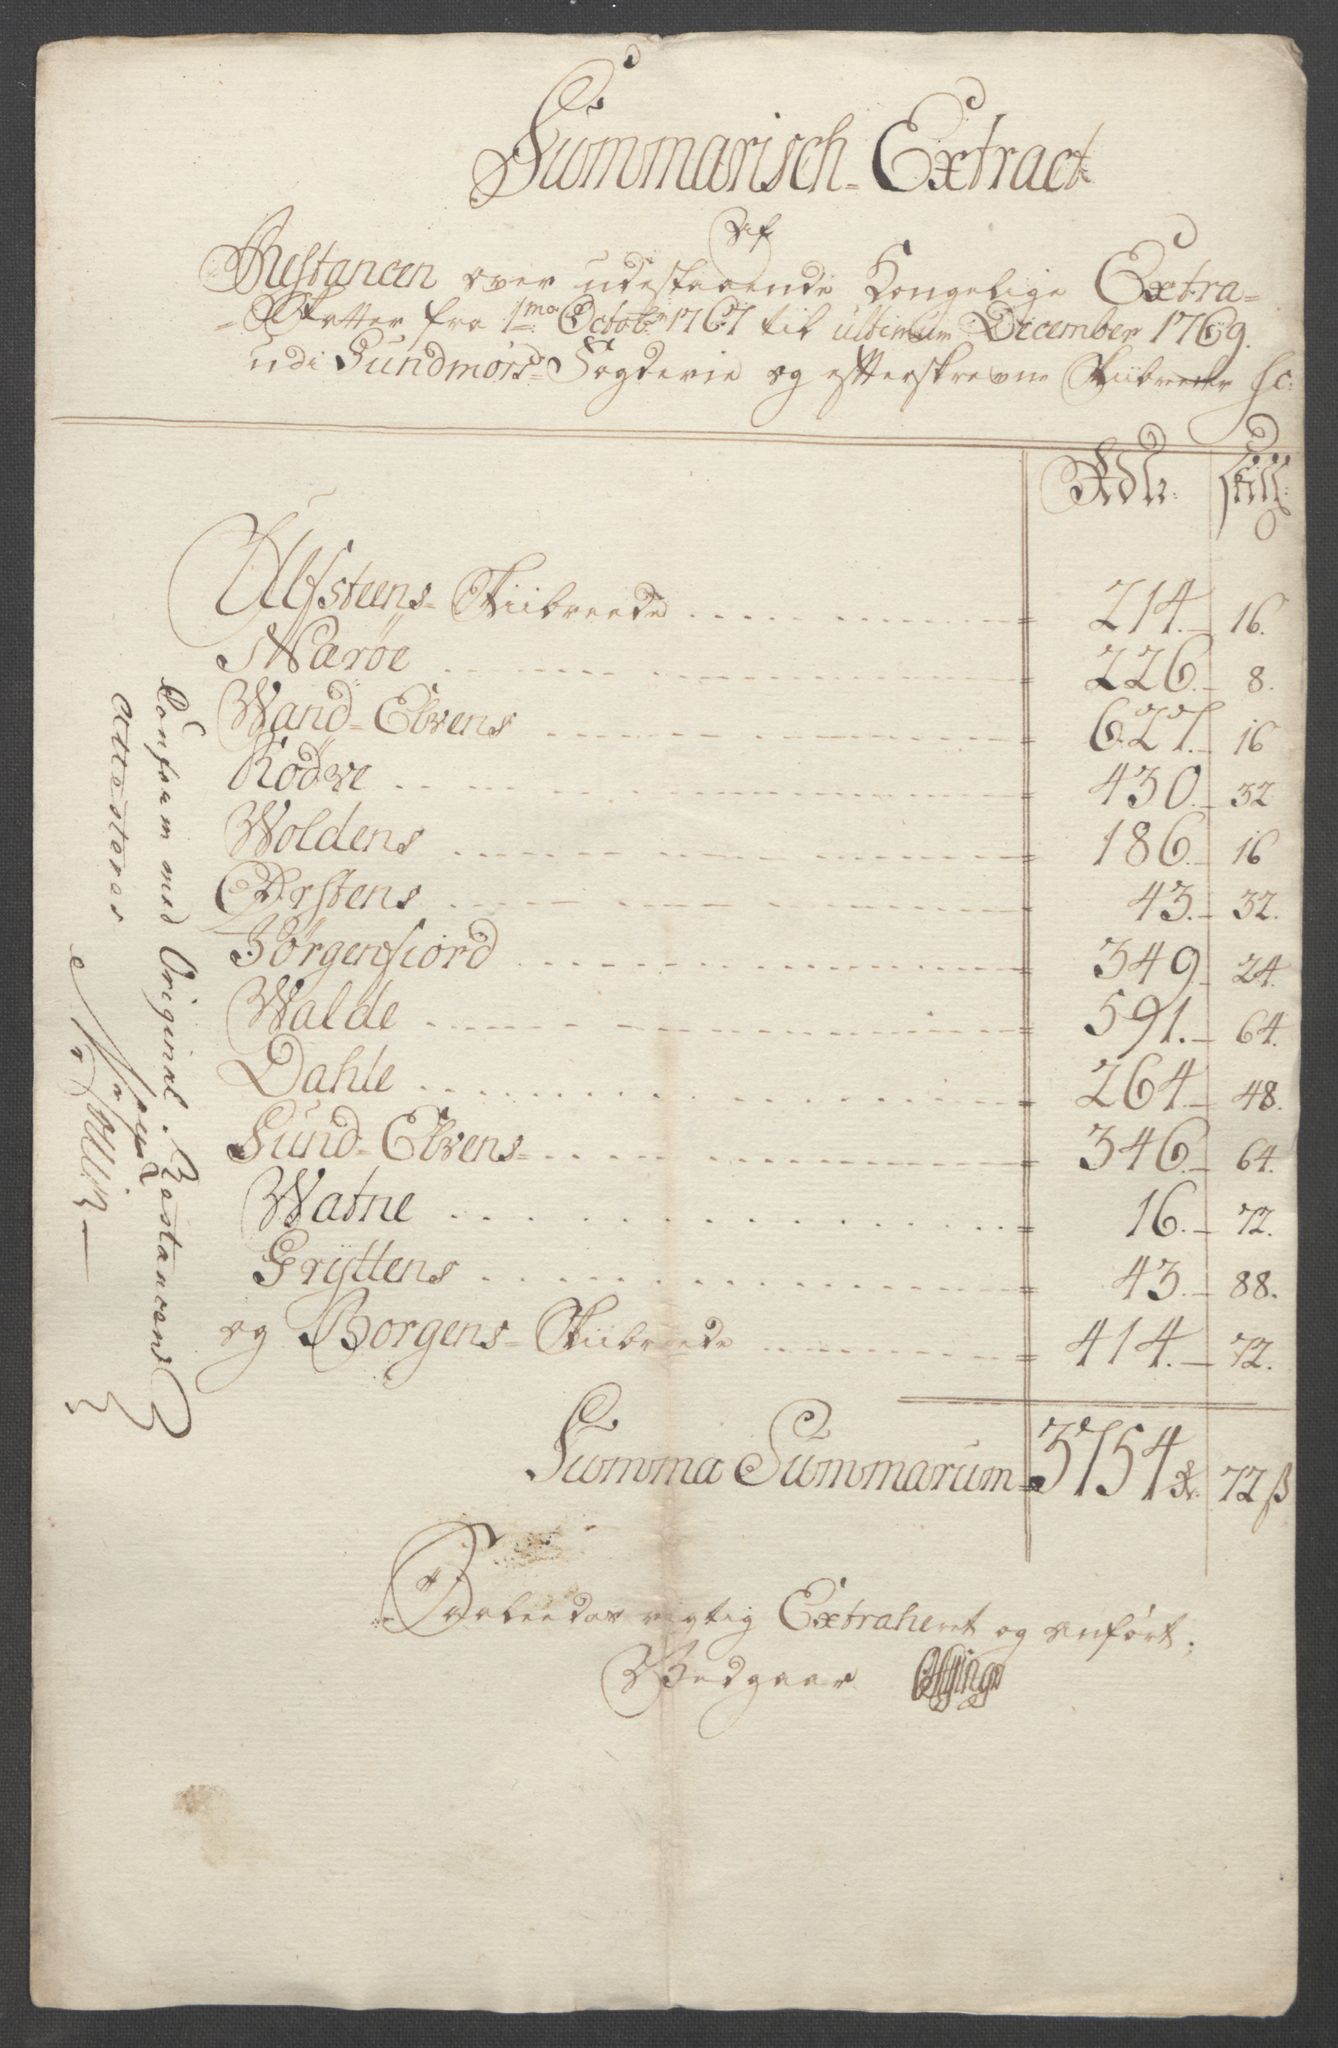 Summarisch Extract
Af
Restancen over udestaaende Kongelige Extra=
=Skatter fra 1ma Octobr 1767 til ultimum December 1769.
udi Sundmørs Fogderie og efterskrevne Skiibreeder &c:
Rdlr: skill:
Ulfsteens= Skiibreede ..... 214.- 16.
Harøe ..... 226.- 8.
Wand=Elvens ..... 627.- 16
Rødve ..... 430.- 32
Woldens ..... 186.- 16
Ørstens ..... 43.- 32.
Jørgenfiord ..... 349.- 24.
Walde ..... 591.- 64.
Dahle ..... 264.- 48.
Sund=Elvens= ..... 346.- 64.
Watne ..... 16.- 72.
Gryttens ..... 43.- 88.
og Borgens= Skiibreede ..... 414.- 72.
Summa Summarum= 3754 Rr 72 ß
Saaleedes rigtig Extraheret og anført,
Vedgaar
Conform med Original Restancend
attesteres